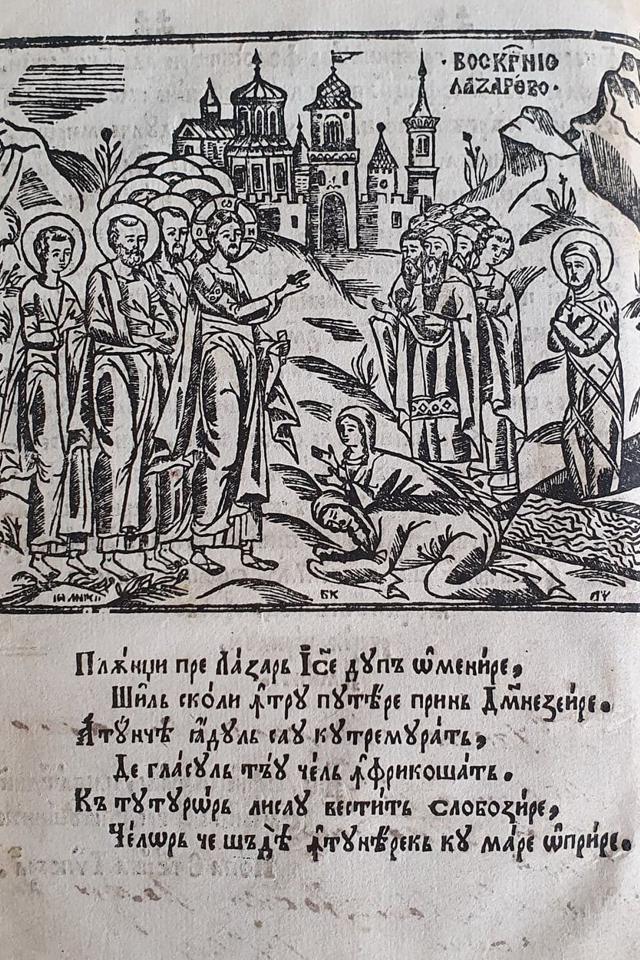 ·ВОСКРН҃ІѠ
ЛАZАРОВО·
Ѡ Ѡ Н
БК
Плѫ́нци пре Ла́зарь І҆с҃е дупъ ѡ҆мени́ре,
Ши́ль ско́ли ꙟ҆тру путѣ́ре принь Дм҃незеи́ре.
А҆ту́нчѣ ꙗ҆́дуль сау кутремура́ть,
Де гла́суль тъ́у че́ль ꙟ҆фрикоша́ть.
Къ тутуро́рь лисау вести́ть слобози́ре,
Че́лѡрь че шъдѣ̀ ꙟ҆тунѣ́рекь ку ма́ре ѡ҆при́ре.